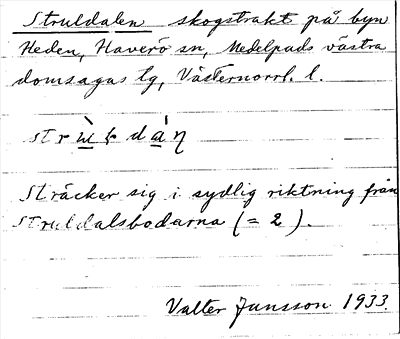 Struldalen skogstrakt på byn
Heden, Haverö sn, Medelpads västra
domsagas tg, Västernorrl. l.
Sträcker sig i sydlig riktning från
Struldalsbodarna (= 2).
Valter Jansson 1933.